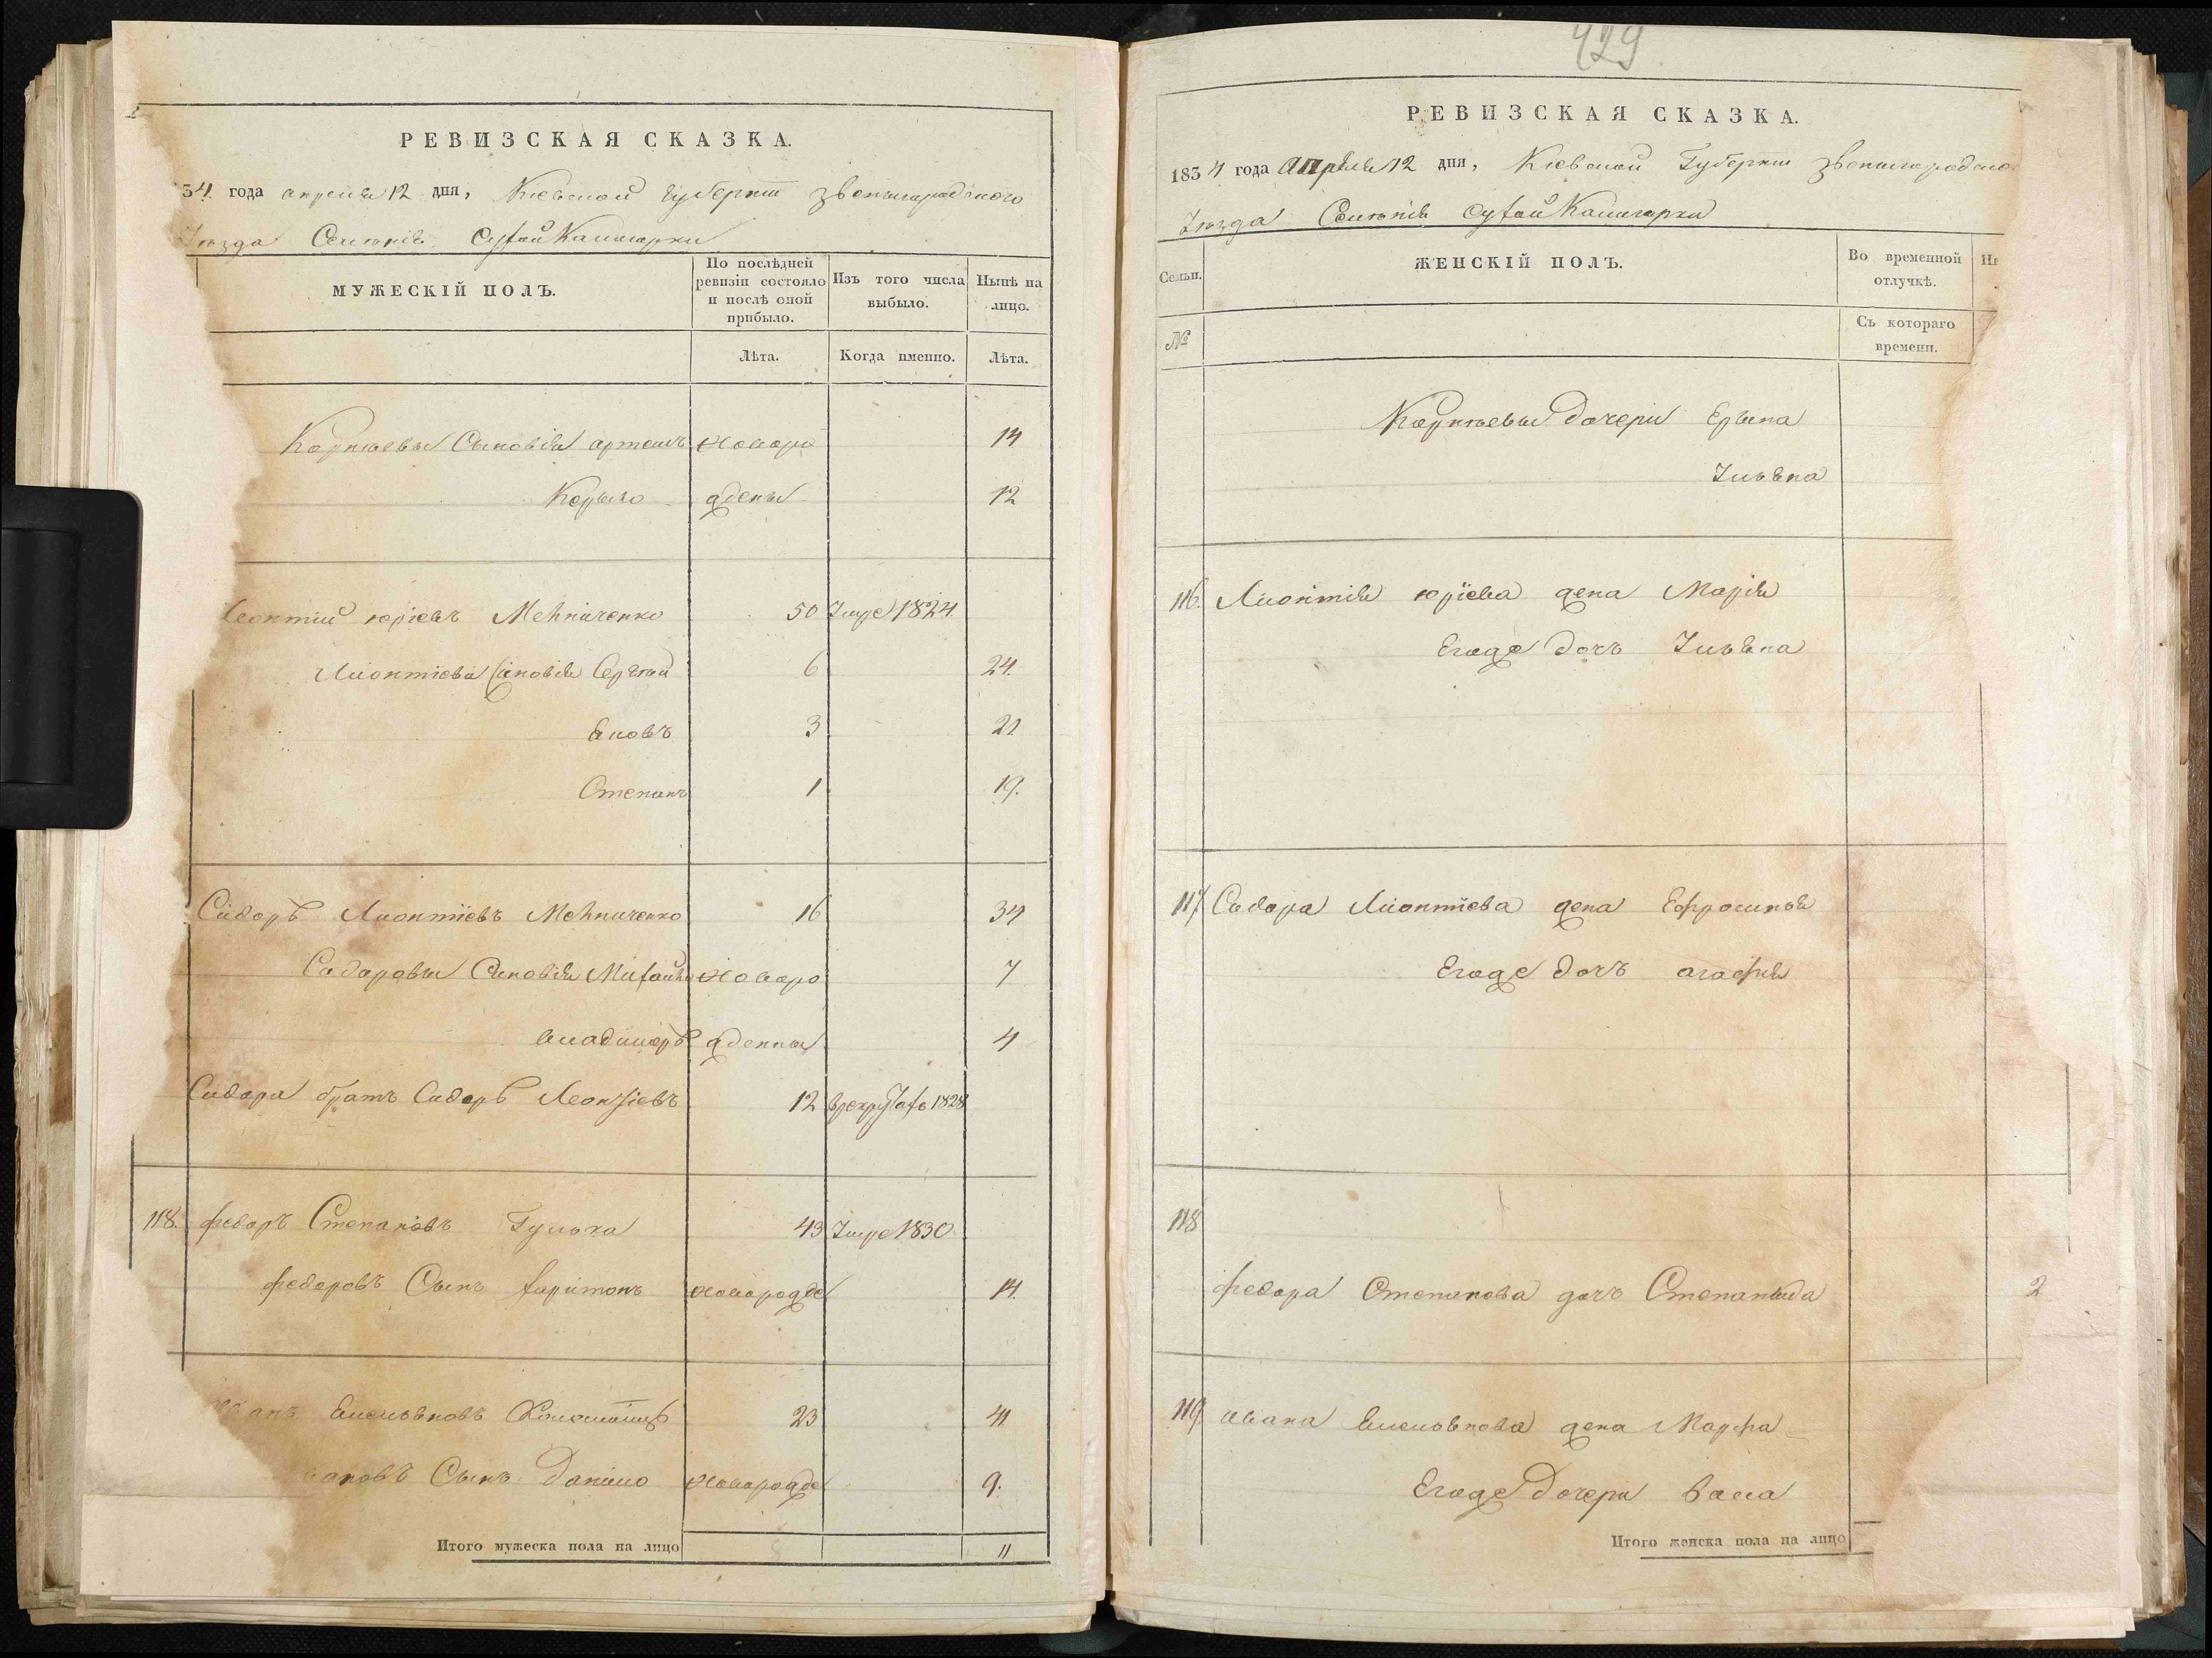 РЕВИЗСКАЯ СКАЗКА.
34 года апреля 12 дня, Киевской губернии Звенигородского
уезда Селенія Сухой Калигорки
МУЖЕСКІЙ ПОЛЪ.
По послѣдней ревизіи состояло и послѣ оной прибыло.
Изъ того числа выбыло.
Нынѣ на лицо.
Лѣта.
Когда именно.
Лѣта.
Корнѣевы Сыновія артемъ новоро 14
Корыло жденны 12
Леонтій юріевъ Мельниченко 50 Умре 1824
Лионтіева Сіновія Сергѣй 6 24.
Яковъ 3 21
Степанъ 1 19.
Сидоръ Лионтіевъ Мельниченко 16 34
Садоровы Сыновія Михайло новоро 7
владимеръ жденны 4
Сидора братъ Сидоръ Леонтіевъ 12 врекрутахъ 1828
118. федоръ Степановъ Гулька 43 Умре 1830
федоровъ Сынъ харитонъ новорожде 14.
анъ Емельяновъ 23 41
ановъ Сынъ Данило новорожде 9.
Итого мужеска пола на лицо 11
429
РЕВИЗСКАЯ СКАЗКА.
1834 года апрѣля 12 дня, Киевской Губерніи Звенигородско
Уезда Селенія Сухой Калигорки
Семьи.
ЖЕНСКІЙ ПОЛЪ.
Во временной отлучкѣ.
Ны
№
Съ котораго времени.
Корнѣевы дочери Ерына
Ульяна
116. Лионтія юріева жена Марія
Егоже дочь Ульяна
117 Садора Лионтіева жена Ефросинья
Егоже дочь агафія
118
федора Степанова дочь Степанида 2
119 ивана Емельянова жена Марфа
Егоже дочери васса
Итого женска пола на лицо